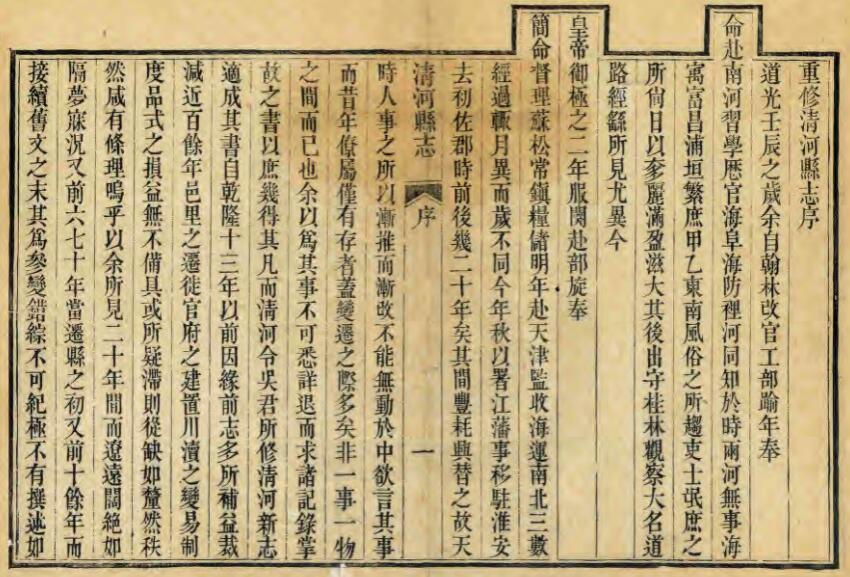 重修清河縣志序
道光壬辰之歲余自翰林改官工部踰年奉
命赴南河習學歷官海阜海防裡河同知於時兩河無事海
寓富昌浦垣繁庶甲乙東南風俗之所趨吏士氓庶之
所尙日以奓麗滿盈滋大其後出守桂林觀察大名道
路經繇所見尤異今
皇帝御極之二年服闋赴部旋奉
簡命督理蘇松常鎮糧儲明年赴天津監收海運南北三數
經過輒月異而歲不同今年秋以署江藩事移駐淮安
去初佐郡時前後幾二十年矣其間豐耗興替之故天
清河縣志 序 一
時人事之所以漸推而漸改不能無動於中欲言其事
而昔年僚屬僅有存者蓋變遷之際多矣非一事一物
之間而已也余以爲其事不可悉詳退而求諸記錄掌
故之書以庶幾得其凡而清河令吳君所修清河新志
適成其書自乾隆十三年以前因緣前志多所補益裁
減近百餘年邑里之遷徙官府之建置川瀆之變易制
度品式之損益無不備具或所疑滯則從缺如釐然秩
然咸有條理嗚乎以余所見二十年間而遼遠闊絕如
隔夢寐況又前六七十年當遷縣之初又前十餘年而
接續舊文之末其爲參變錯綜不可紀極不有撰述如